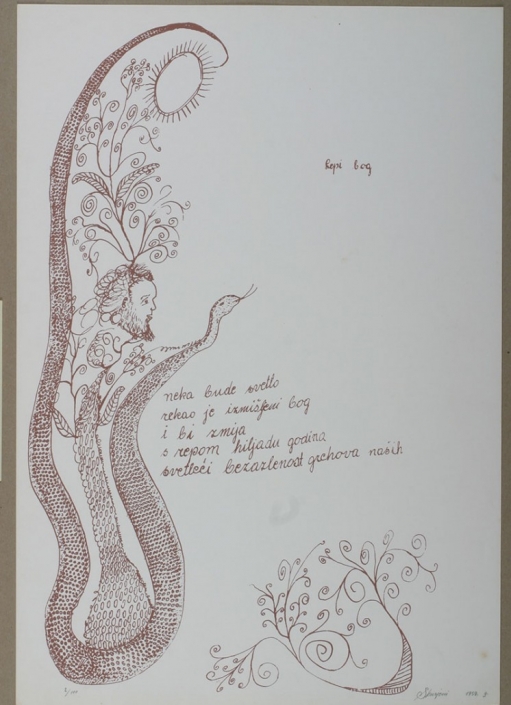 lepi bog
neka bude svetlo
rekao je izmišljeni bog
i bi zmija
s repom hiljadu godina
svetleći bezazlenost grehova naših